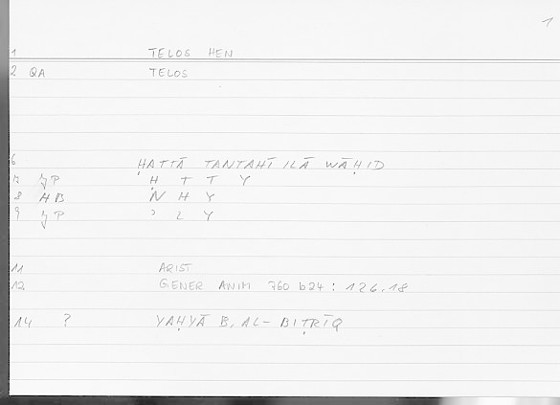 1
1 TELOS HEN
2 QA TELOS
6 ḤATTĀ TANTAHĪ ILĀ WĀḤID
7 jP Ḥ T T Y
8 HB N H Y
9 jP ʾ L Y
11 ARIST
12 GENER ANIM 760 b24 : 126.18
14 ? YAḤYĀ B. AL-BIṬRĪQ